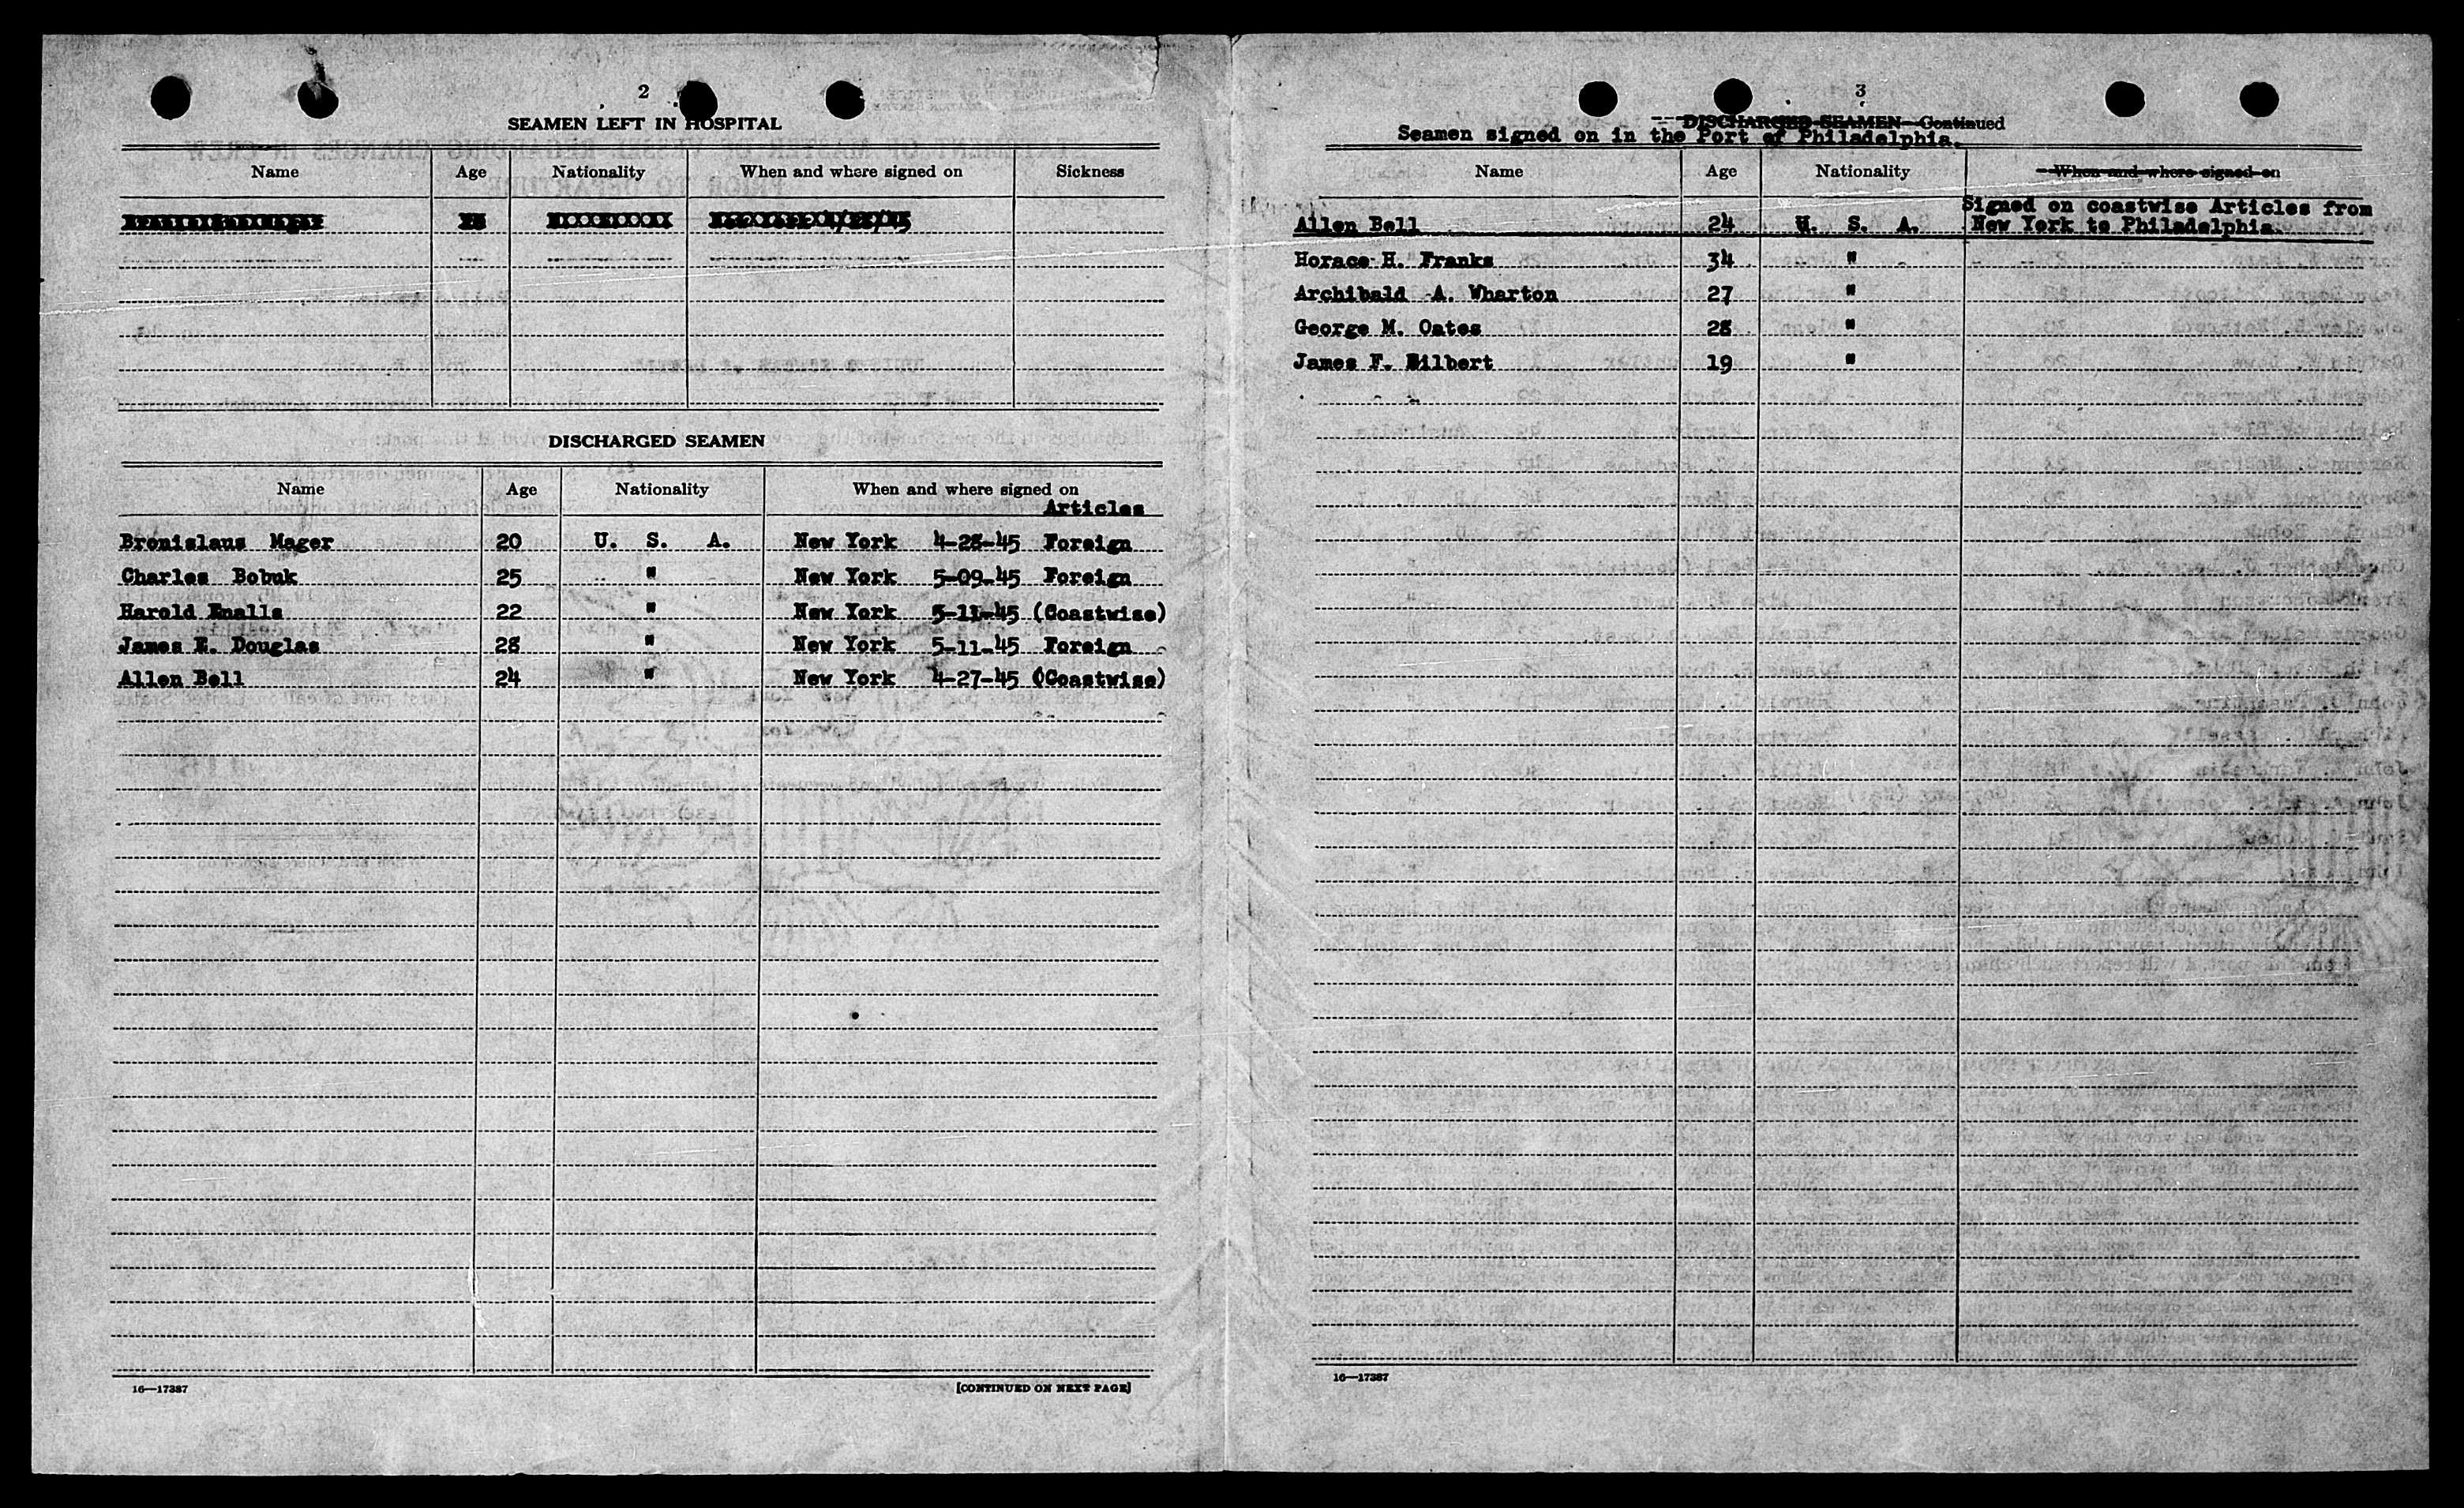 2
SEAMEN LEFT IN HOSPITAL
Name Age Nationality When and where signed on Sickness
DISCHARGED SEAMEN
Name Age Nationality When and where signed on
Articles
Bronislaus Mager 20 U. S. A. New York 4-28-45 Foreign
Charles Bobuk 25 " New York 5-09-45 Foreign
Harold Enalls 22 " New York 5-11-45 (Coastwise)
James E. Douglas 28 " New York 5-11-45 Foreign
Allen Bell 24 " New York 4-27-45 (Coastwise)
16—17387 [CONTINUED ON NEXT PAGE]
3
DISCHARGED SEAMEN—Continued
Seamen signed on in the Port of Philadelphia.
Name Age Nationality When and where signed on
Signed on coastwise Articles from
Allen Bell 24 U. S. A. New York to Philadelphia.
Horace H. Franks 34 "
Archibald A. Wharton 27 "
George M. Oates 28 "
James F. 19 "
16—17387